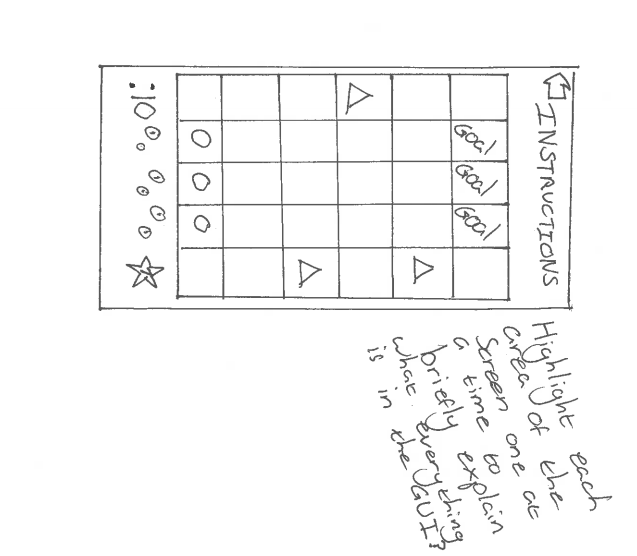 INSTRUCTIONS
Goal
Goal
Goal
Highlight each
area of the
screen one at
a time to
briefly explain
what everything
is in the GUI?